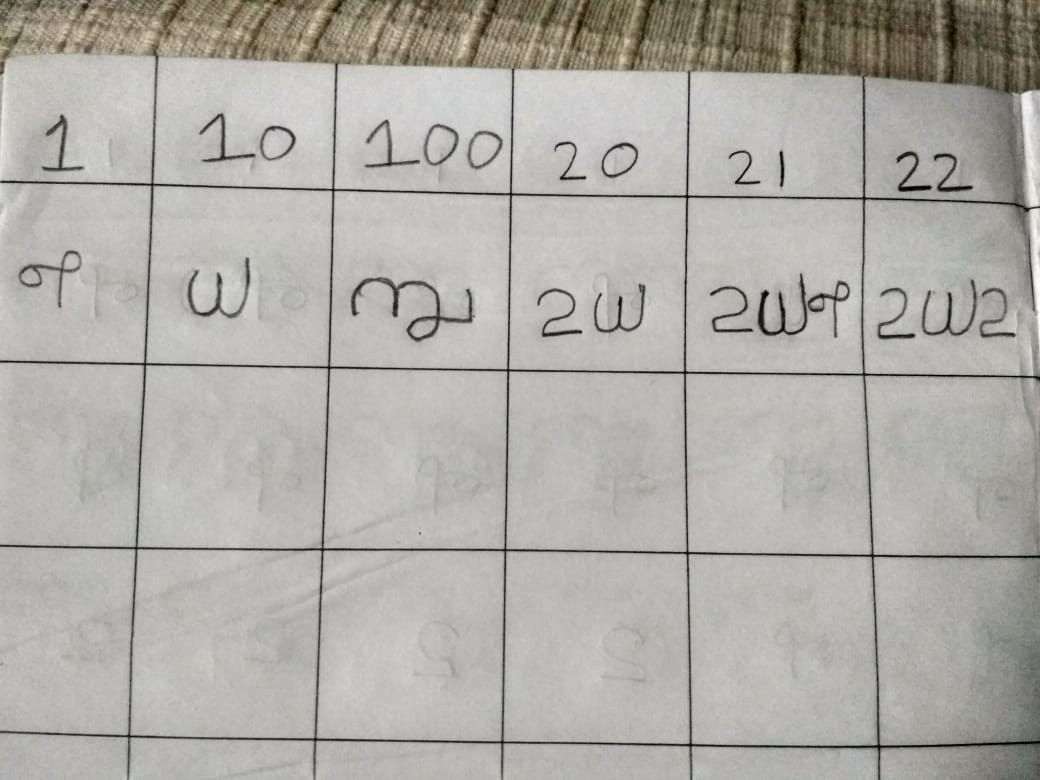 1 10 100 20 21 22
൧ ൰ ൱ ൨൰ ൨൰൧ ൨൰൨